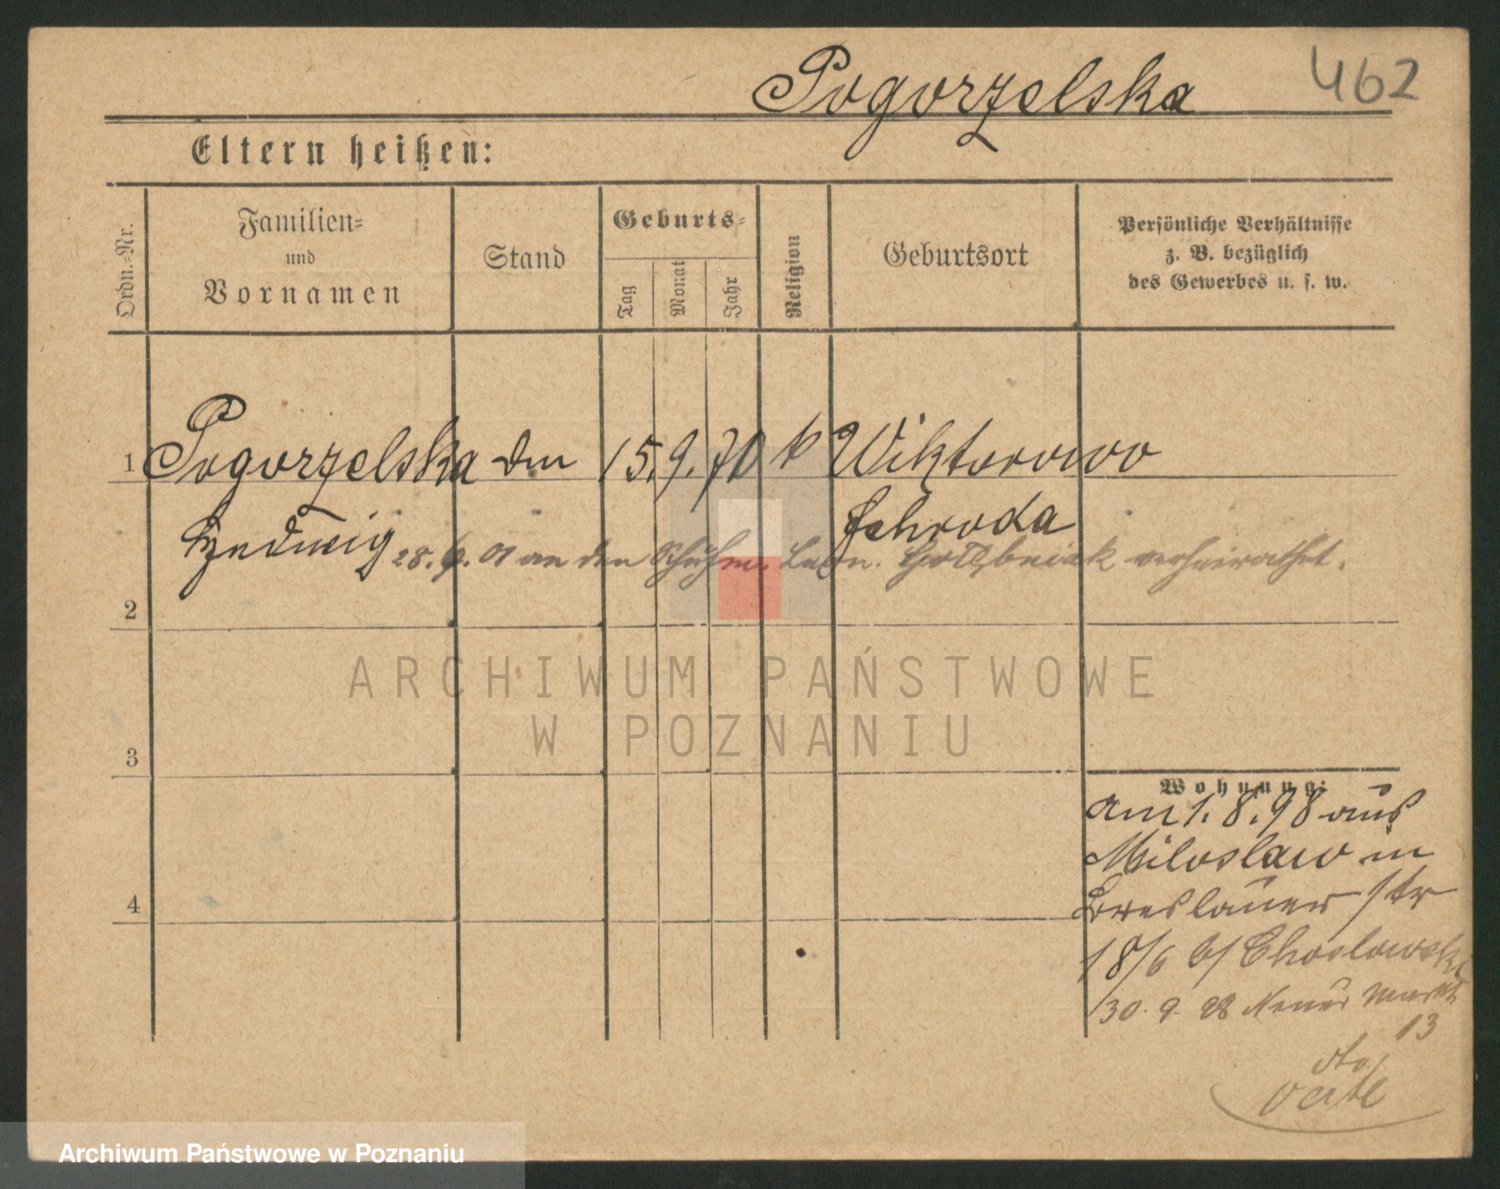 Pogorzelska 462
Eltern heißen:
Ordn.-Nr.
Familien-
und
Vornamen
Stand
Geburts-
Tag
Monat
Jahr
Religion
Geburtsort
Persönliche Verhältnisse
z. B. bezüglich
des Gewerbes u. s. w.
1 Pogorzelska 15. 9. 70 k Wiktorowo
Hedwig Schroda
an den Leon. verheirathet.
2
ARCHIWUM PAŃSTWOWE
W POZNANIU
3
Wohnung:
am 1. 8. 98 aus
4
Miloslaw in
Breslauer str
18/6 b/ Choslowski
30. 9. 98 Neuer Markt
13
verte
Archiwum Państwowe w Poznaniu